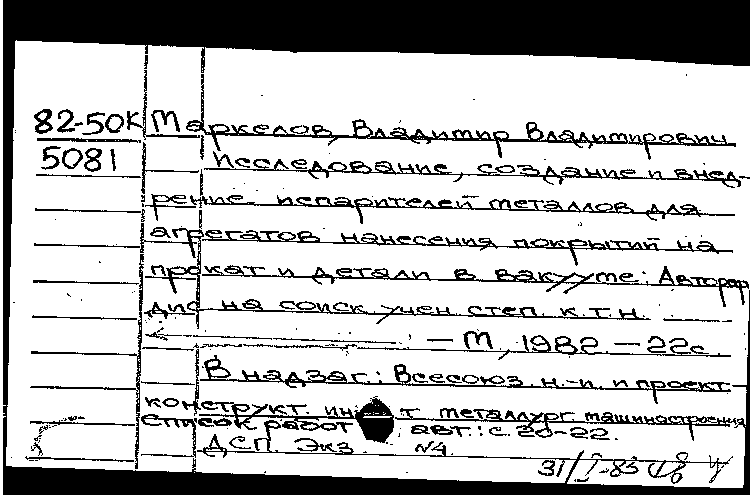 82-50К Маркелов, Владимир Владимирович
5081 Исследование, создание и внед-
рение испарителей металлов для
агрегатов нанесения покрытий на
прокат и детали в вакууме: Автореф
дис на соиск учен степ. к.т.н.
— М, 1982. — 22с.
В надзаг.: Всесоюз. н.-и. и проект.-
конструкт. ин-т металлург. машиностроения
Список работ авт.: с. 20-22.
ДСП. Экз. №4.
31/I-83